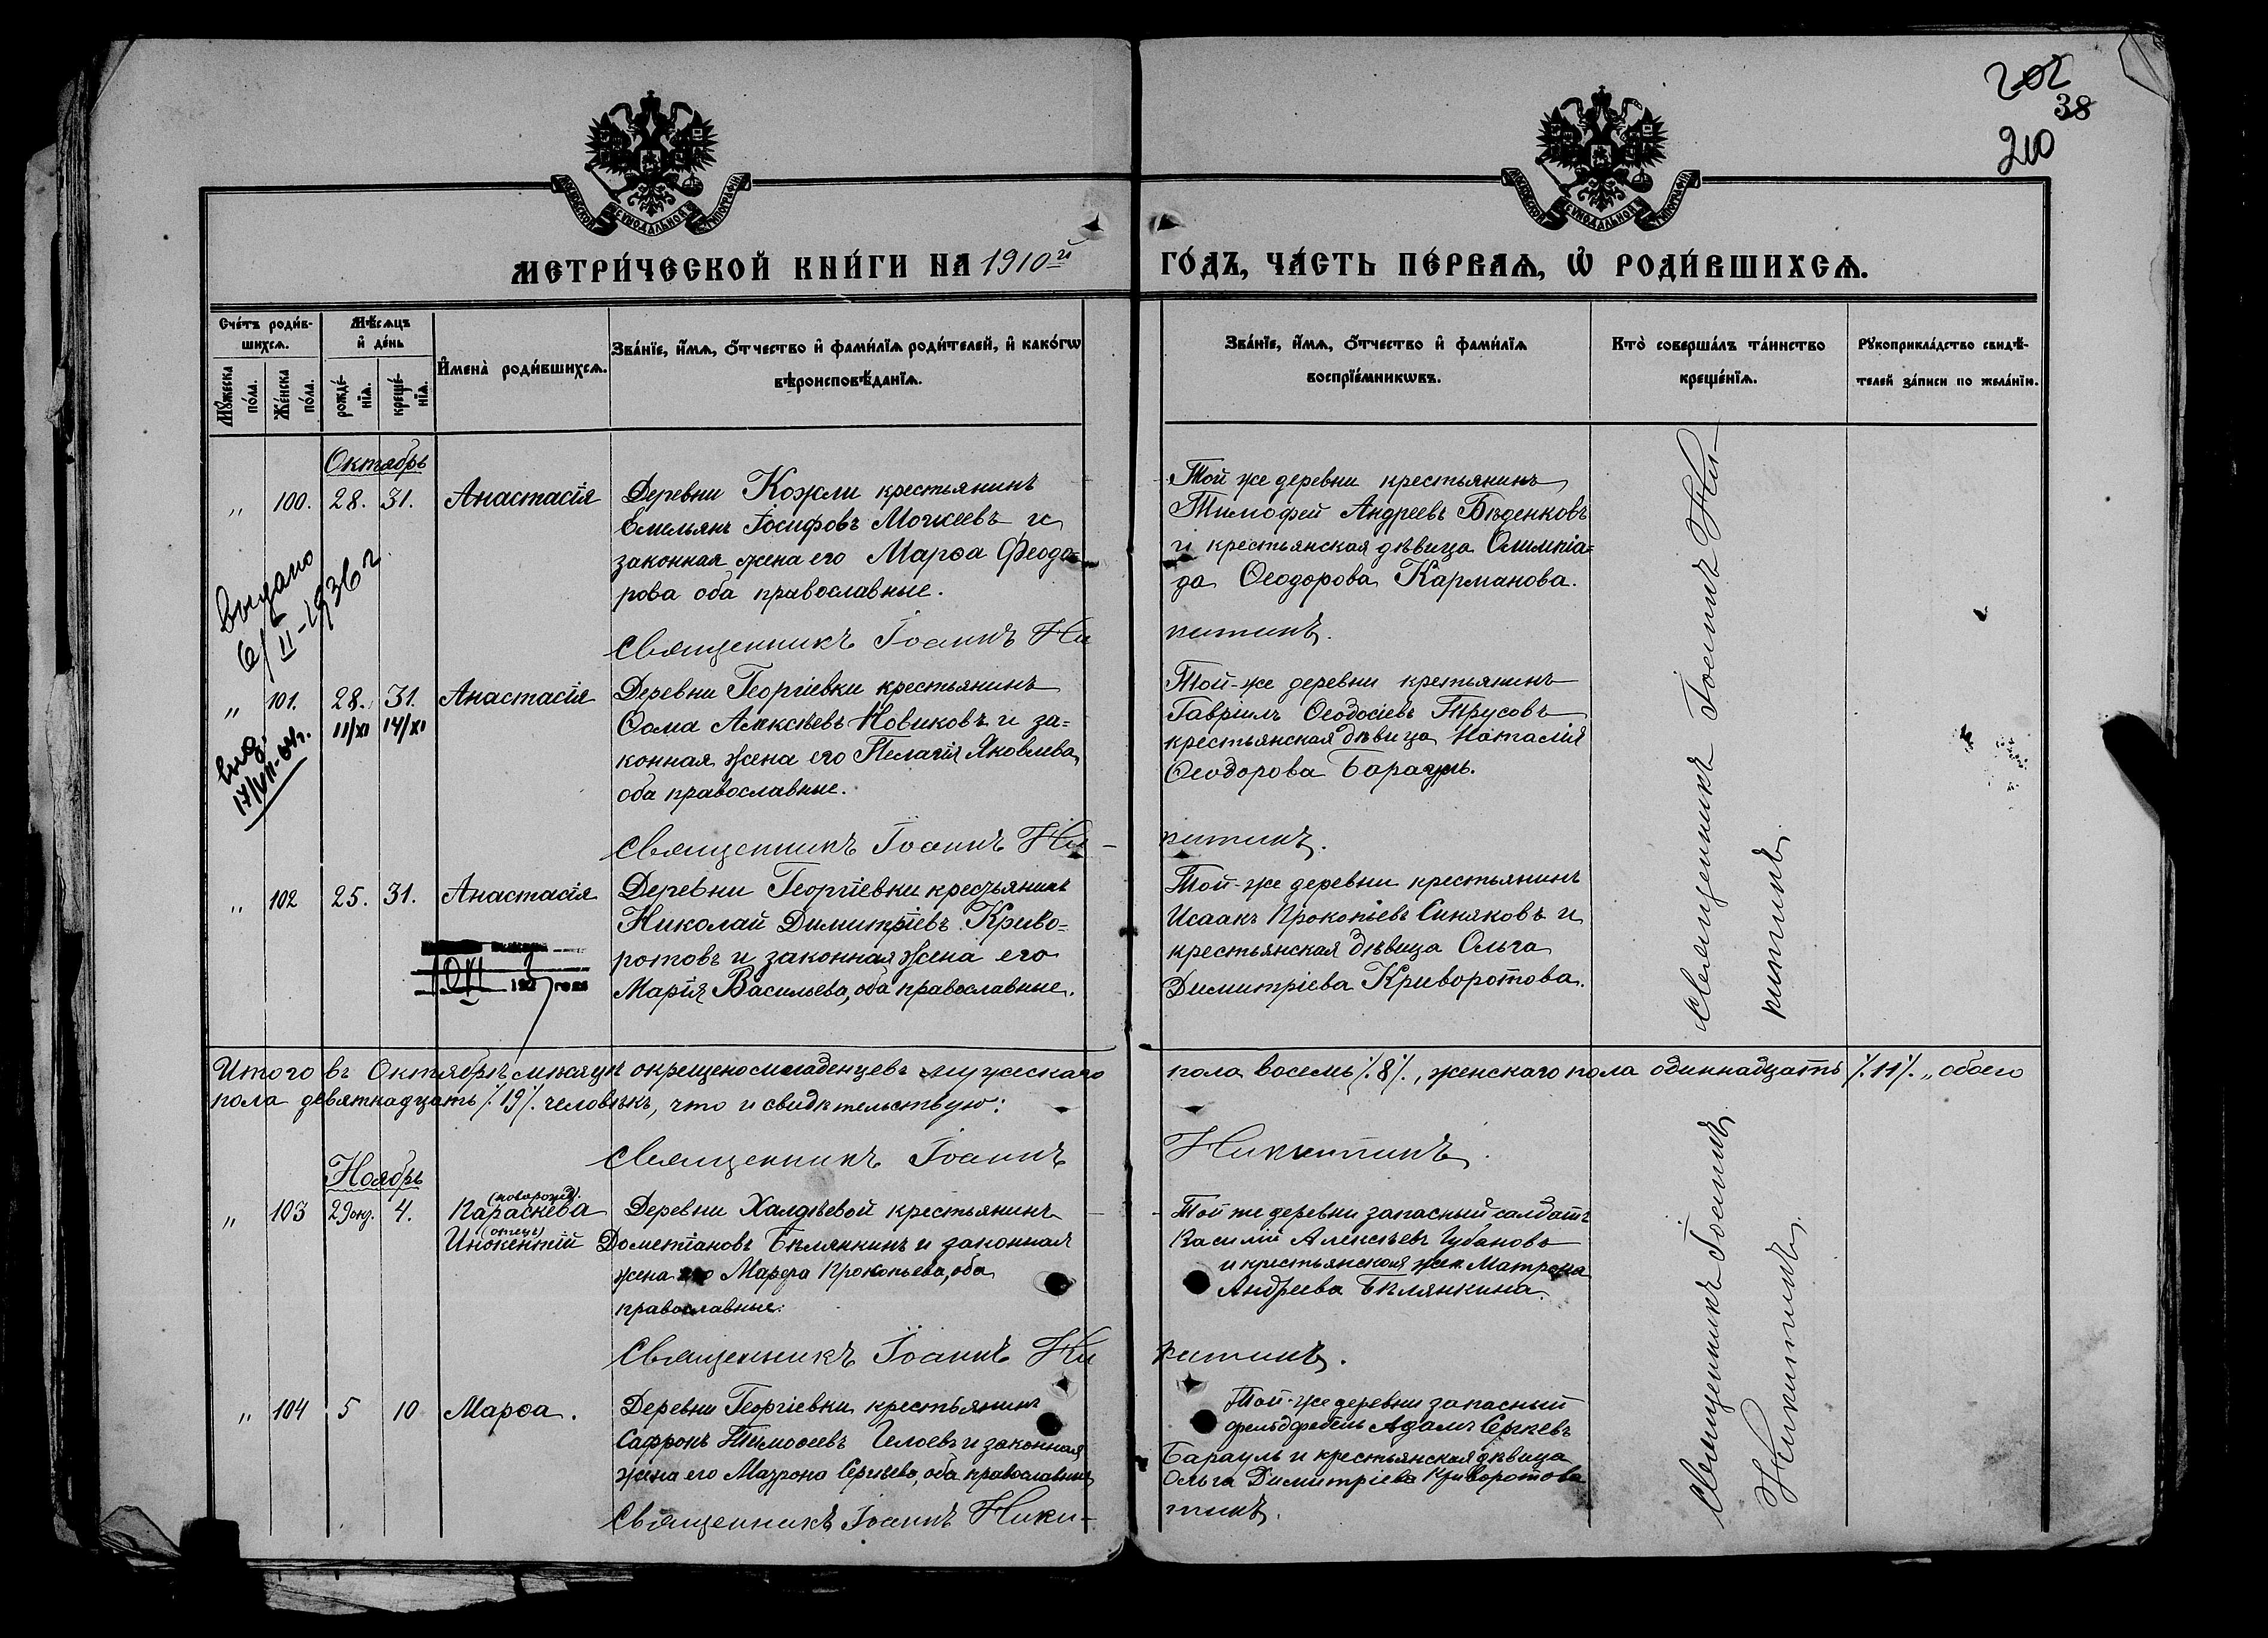 202
38
210
МОСКОВСКОЙ СУНОДАЛЬНОЙ ТИПОГРАФІИ
МОСКОВСКОЙ СУНОДАЛЬНОЙ ТИПОГРАФІИ
МЕТРИ́ЧЕСКОЙ КНИ́ГИ НА 1910й
ГО́ДЪ, ЧА́СТЬ ПЕ́РВАѦ, Ѡ҆ РОДИ́ВШИХСѦ.
Сче́тъ роди́в-
шихсѧ.
Мꙋ́жеска по́ла.
Же́нска по́ла.
Мѣ́сѧцъ и҆ де́нь
рожде́-
нїѧ.
креще́-
нїѧ.
И҆мена̀ роди́вшихсѧ.
Зва́нїе, и҆́мѧ, ѻ҆́тчество и҆ фами́лїѧ роди́телей, и҆ како́гѡ
вѣроисповѣ́данїѧ.
Зва́нїе, и҆́мѧ, ѻ҆́тчество и҆ фами́лїѧ
воспрїе́мникѡвъ.
Кто̀ соверша́лъ та́инство
креще́нїѧ.
Рꙋкоприкла́дство свидѣ́-
телей за́писи по жела́нїю.
Октябрь
" 100. 28. 31. Анастасія
Деревни Кожли крестьянинъ
Емельянъ Іосифовъ Мочкеевъ и
законная жена его Марѳа Феодо-
рова оба православные.
Той же деревни крестьянинъ
Тимофей Андреевъ Бѣденковъ
и крестьянская дѣвица Олимпіа=
да Ѳеодорова Карманова.
Священникъ Іоаннъ Ни
китинъ.
Выдано
6/II-1936 г
" 101. 28. 31. Анастасія
11/XI 14/XI
Деревни Георгіевки крестьянинъ
Ѳома Алексѣевъ Новиковъ и за=
конная жена его Пелагія Яковлева,
оба православные.
Той-же деревни крестьянинъ
Гавріилъ Ѳеодосіевъ Трусовъ
крестьянская дѣвица Наталія
Ѳеодорова Барауль.
17/VII-64г.
Священникъ Іоаннъ Ни-
китинъ.
" 102 25. 31. Анастасія
Деревни Георгіевки крестьянинъ
Николай Димитріевъ Криво=
ротовъ и законная жена его
Марія Васильева, оба православные.
Той-же деревни крестьянинъ
Исаакъ Прокопіевъ Синяковъ и
крестьянская дѣвица Ольга
Димитріева Криворотова.
193 года
Священникъ Іоаннъ Ни-
китинъ.
Итого въ Октябрѣ мѣсяцѣ окрещено младенцевъ мужскаго пола восемь /.8/., женскаго пола одиннадцать /.11/. „ обоего
пола девятнадцать /.19/. человѣкъ, что и свидѣтельствую:
Священникъ Іоаннъ Никитинъ.
Ноябрь
(новорожд.)
" 103 29 окт. 4. Параскева
(отецъ)
Инокентій
Деревни Халдѣевой крестьянинъ
Дометіановъ Бѣлянкинъ и законная
жена его Марѳа Прокопьева, оба
православные.
Той же деревни запасный салдатъ
Василій Алексѣевъ Губановъ
и крестьянская жена Матрона
Андреева Бѣлянкина.
Священникъ Іоаннъ Ни
китинъ.
" 104 5 10 Марѳа.
Деревни Георгіевки крестьянинъ
Сафронъ Тимоѳеевъ и законная
жена его Сергѣева, оба православные
Той-же деревни запасный
фельдфебель Адамъ Сергѣевъ
Барауль и крестьянская дѣвица
Ольга Димитріева Криворотова
Священникъ Іоаннъ Ники-
тинъ.
Священникъ Іоаннъ
Никитинъ.